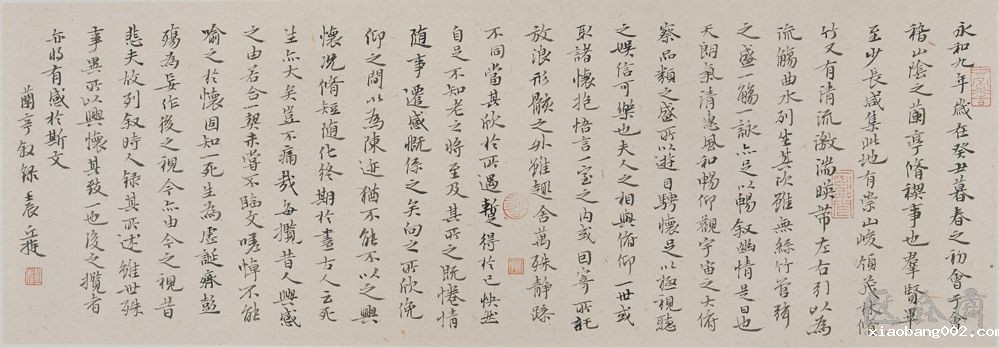 永和九年歲在癸丑暮春之初會于會
稽山陰之蘭亭脩禊事也羣賢畢
至少長咸集此地有崇山峻領茂林脩
竹又有清流激湍暎帶左右引以為
流觴曲水列坐其次雖無絲竹管弦
之盛一觴一詠亦足以暢叙幽情是日也
天朗氣清惠風和暢仰觀宇宙之大俯
察品類之盛所以遊目騁懷足以極視聽
之娛信可樂也夫人之相與俯仰一世或
取諸懷抱悟言一室之內或因寄所託
放浪形骸之外雖趣舍萬殊靜躁
不同當其欣於所遇蹔得於己怏然
自足不知老之將至及其所之既惓情
随事遷感慨係之矣向之所欣俛
仰之間以為陳迹猶不能不以之興
懷況脩短随化終期於盡古人云死
生亦大矣豈不痛哉每攬昔人興感
之由若合一契未嘗不臨文嗟悼不能
喻之於懷固知一死生為虛誕齊彭
殤為妄作後之視今亦由今之視昔
悲夫故列叙時人錄其所述雖世殊
事異所以興懷其致一也後之攬者
亦將有感於斯文
蘭亭叙錄袁
xiaobang002.com